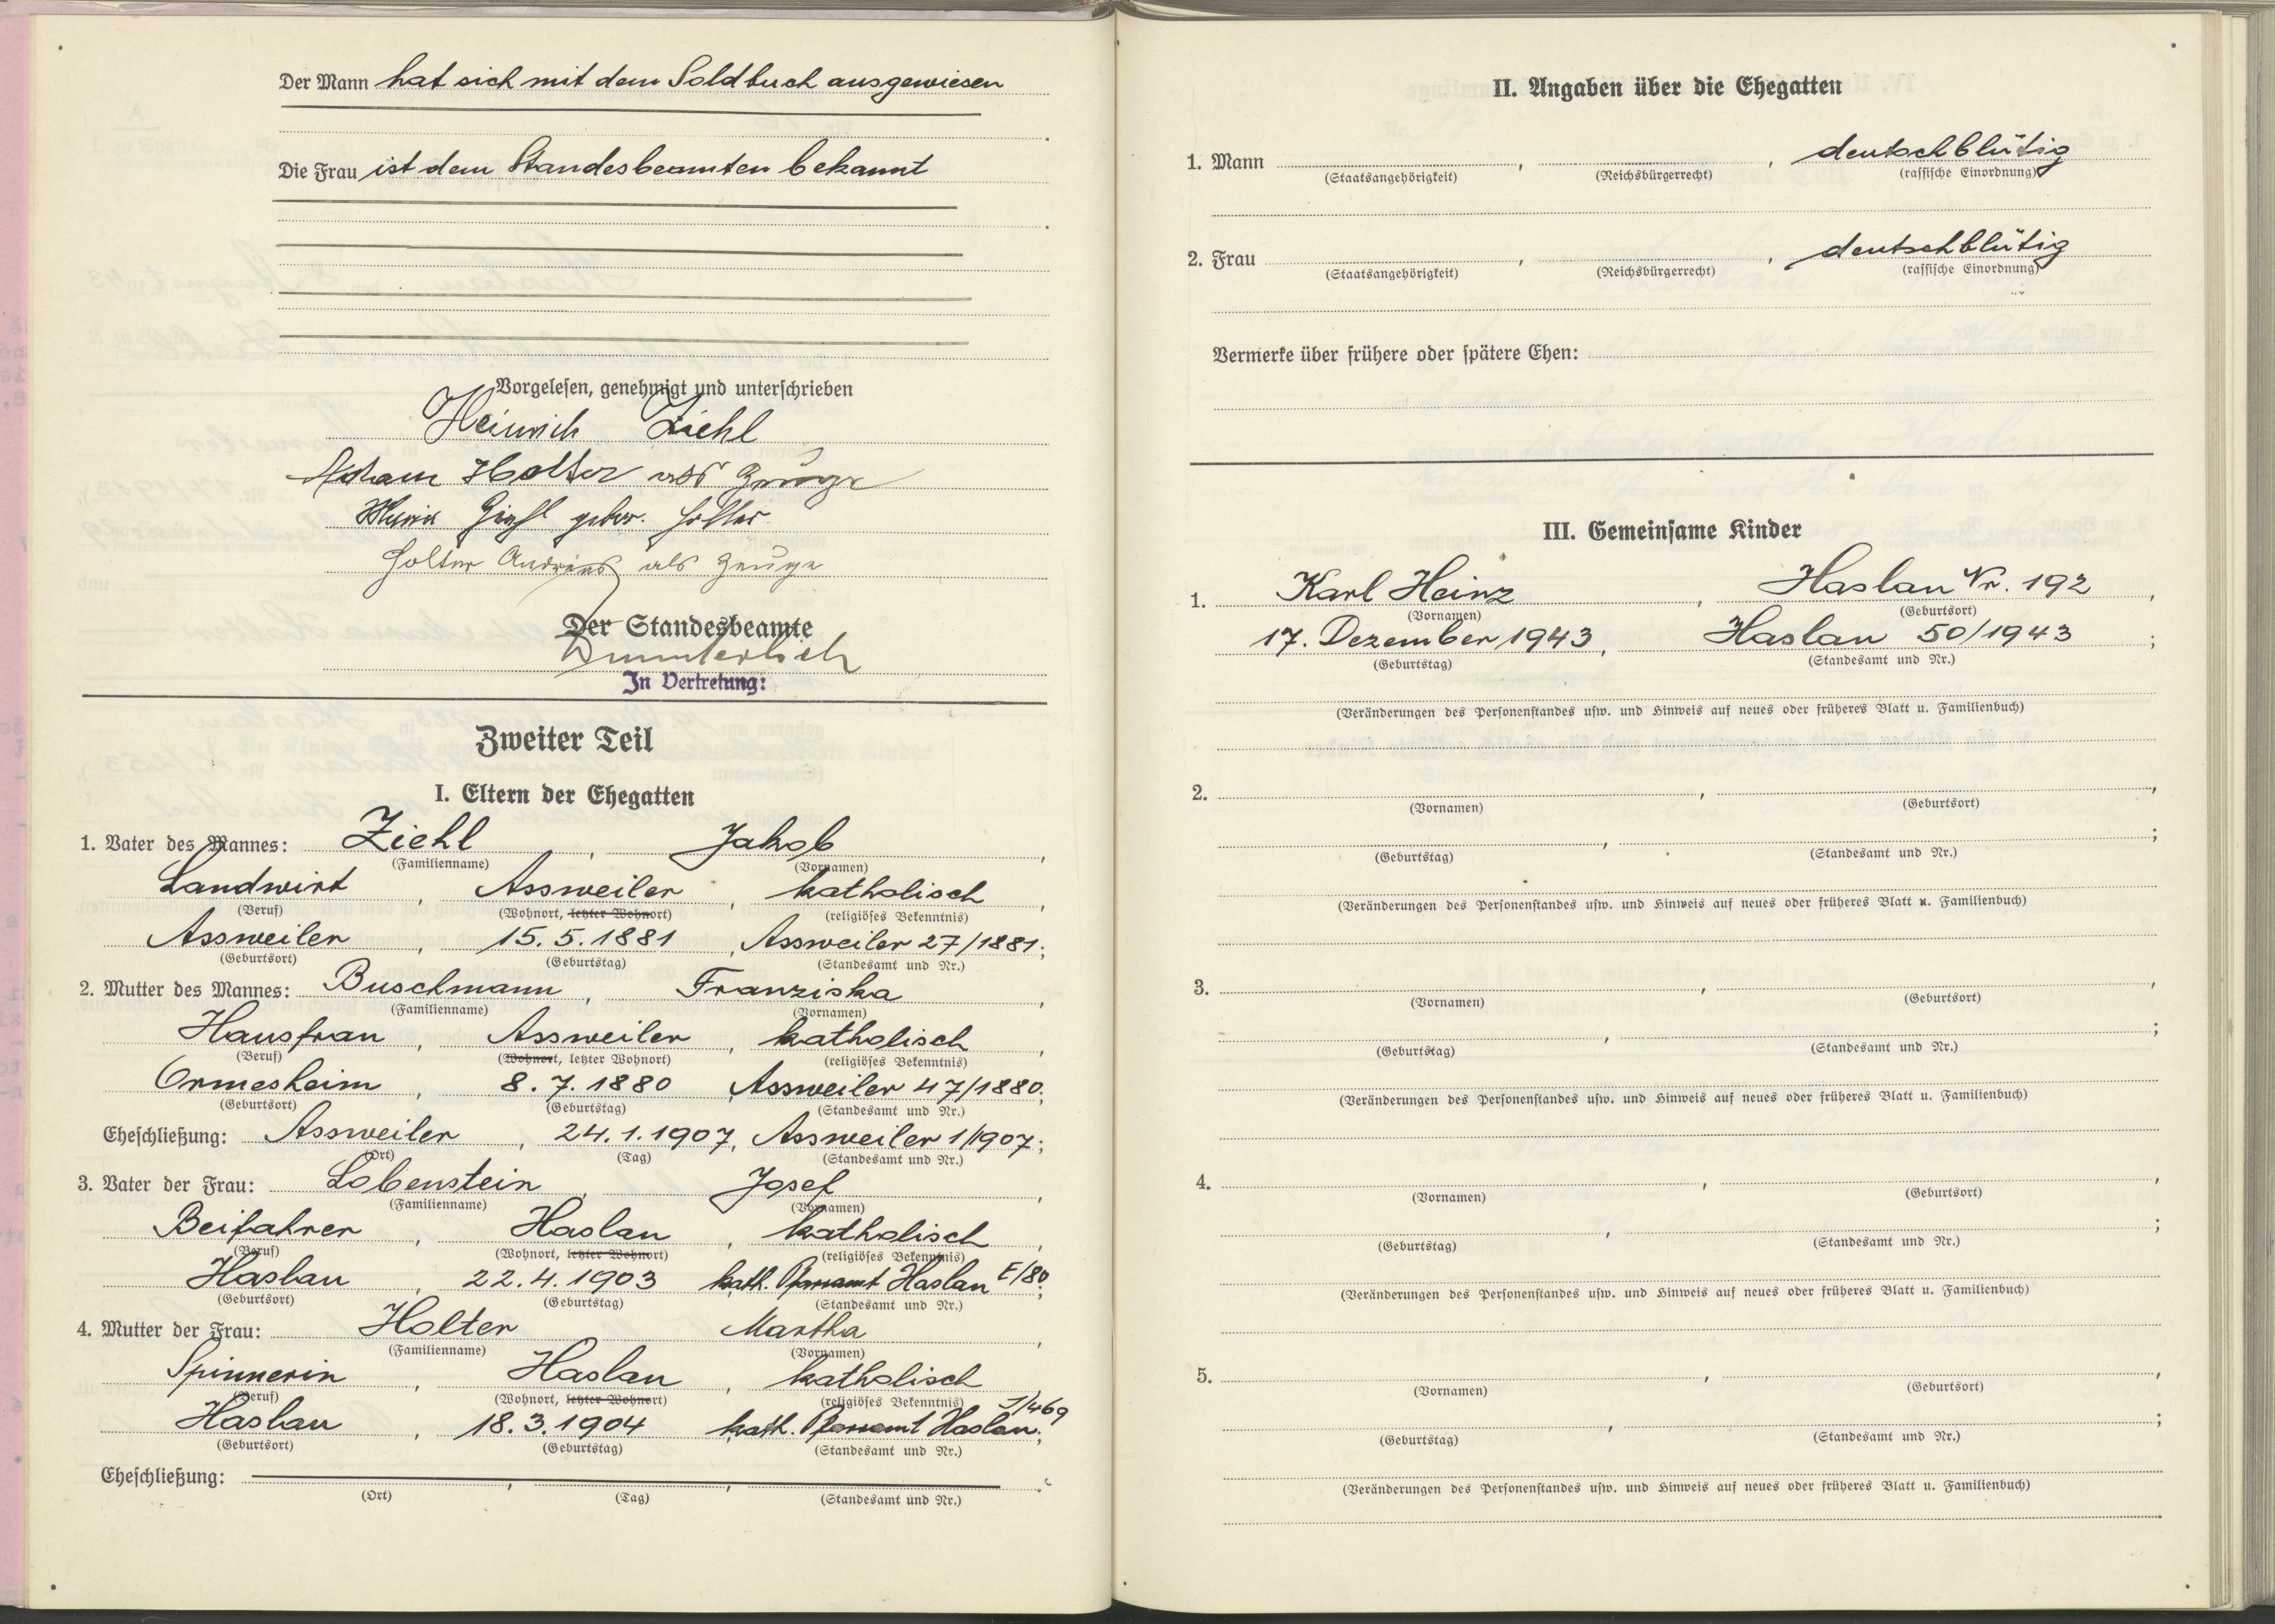 Der Mann hat sich mit dem Soldbuch ausgewiesen
Die Frau ist dem Standesbeamten bekannt
Vorgelesen, genehmigt und unterschrieben
Heinrich Ziehl
Adam Holter als Zeuge
Maria Ziehl gebor. Holter
Holter Andreas als Zeuge
Der Standesbeamte
In Vertretung:
Zweiter Teil
I. Eltern der Ehegatten
1. Vater des Mannes: Ziehl, Jakob,
(Familienname) (Vornamen)
Landwirt, Assweiler, katholisch,
(Beruf) (Wohnort, letzter Wohnort) (religiöses Bekenntnis)
Assweiler, 15.5.1881, Assweiler 27/1881;
(Geburtsort) (Geburtstag) (Standesamt und Nr.)
2. Mutter des Mannes: Buschmann, Franziska,
(Familienname) (Vornamen)
Hausfrau, Assweiler, katholisch,
(Beruf) (Wohnort, letzter Wohnort) (religiöses Bekenntnis)
Ormesheim, 8.7.1880, Assweiler 47/1880;
(Geburtsort) (Geburtstag) (Standesamt und Nr.)
Eheschließung: Assweiler, 24.1.1907, Assweiler 1/1907;
(Ort) (Tag) (Standesamt und Nr.)
3. Vater der Frau: Lobenstein, Josef,
(Familienname) (Vornamen)
Beifahrer, Haslau, katholisch,
(Beruf) (Wohnort, letzter Wohnort) (religiöses Bekenntnis)
Haslau, 22.4.1903 kath. Pfarramt Haslau E/80;
(Geburtsort) (Geburtstag) (Standesamt und Nr.)
4. Mutter der Frau: Holter Martha,
(Familienname) (Vornamen)
Spinnerin, Haslau, katholisch
(Beruf) (Wohnort, letzter Wohnort) (religiöses Bekenntnis)
Haslau, 18.3.1904 kath. Pfarramt Haslau J/469;
(Geburtsort) (Geburtstag) (Standesamt und Nr.)
Eheschließung:
(Ort) (Tag) (Standesamt und Nr.)
II. Angaben über die Ehegatten
1. Mann, , deutschblütig
(Staatsangehörigkeit) (Reichsbürgerrecht) (rassische Einordnung)
2. Frau, , deutschblütig
(Staatsangehörigkeit) (Reichsbürgerrecht) (rassische Einordnung)
Vermerke über frühere oder spätere Ehen:
III. Gemeinsame Kinder
1. Karl Heinz, Haslau Nr. 192,
(Vornamen) (Geburtsort)
17. Dezember 1943, Haslau 50/1943;
(Geburtstag) (Standesamt und Nr.)
(Veränderungen des Personenstandes usw. und Hinweis auf neues oder früheres Blatt u. Familienbuch)
2. , ,
(Vornamen) (Geburtsort)
, ;
(Geburtstag) (Standesamt und Nr.)
(Veränderungen des Personenstandes usw. und Hinweis auf neues oder früheres Blatt u. Familienbuch)
3. , ,
(Vornamen) (Geburtsort)
, ;
(Geburtstag) (Standesamt und Nr.)
(Veränderungen des Personenstandes usw. und Hinweis auf neues oder früheres Blatt u. Familienbuch)
4. , ,
(Vornamen) (Geburtsort)
, ;
(Geburtstag) (Standesamt und Nr.)
(Veränderungen des Personenstandes usw. und Hinweis auf neues oder früheres Blatt u. Familienbuch)
5. , ,
(Vornamen) (Geburtsort)
, ;
(Geburtstag) (Standesamt und Nr.)
(Veränderungen des Personenstandes usw. und Hinweis auf neues oder früheres Blatt u. Familienbuch)